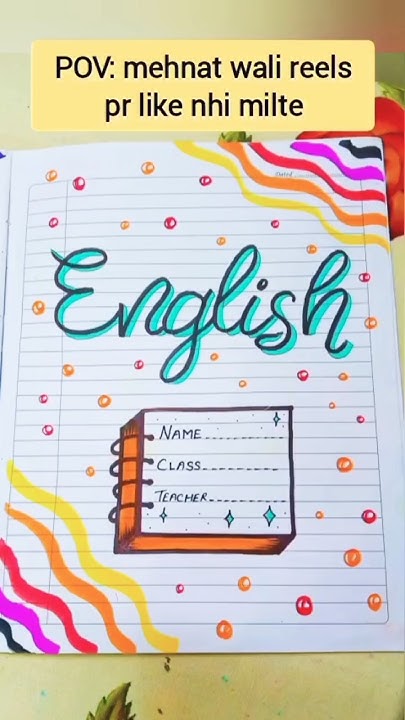 POV: mehnat wali reels
pr like nhi milte
Dated
English
NAME
CLASS
TEACHER